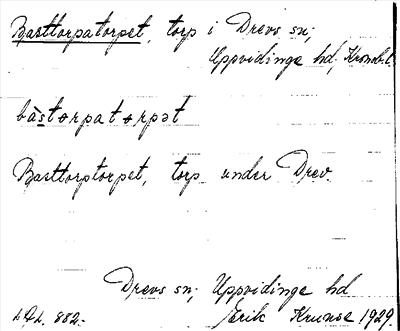 Basttorpatorpet, torp i Drevs sn;
Uppvidinge hd, Kronob.l.
bàstorpatorpət
Basttorpstorpet, torp under Drev.
Drevs sn; Uppvidinge hd
882. Erik Kruuse 1929.